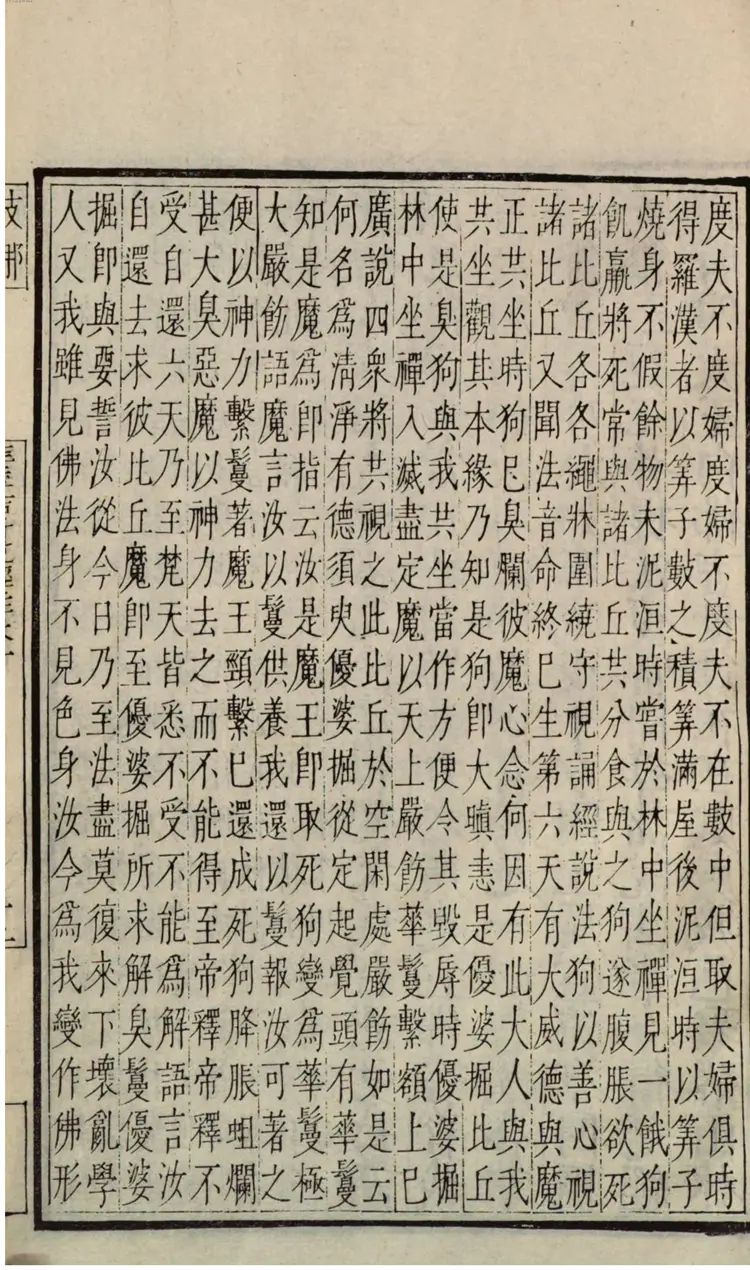 度夫不度婦度婦不度夫不在數中但取夫婦俱時
得羅漢者以筭子數之積筭滿屋後泥洹時以筭子
燒身不假餘物未泥洹時嘗於林中坐禪見一餓狗
飢羸將死常與諸比丘共分食與之狗遂腹脹欲死
諸比丘各各繩牀圍繞守視誦經說法狗以善心視
諸比丘又聞法音命終已生第六天有大威德與魔
正共坐時狗已臭爛彼魔心念何因有此大人與我
共坐觀其本緣乃知是狗即大瞋恚是優婆掘比丘
使是臭狗與我共坐當作方便令其毀辱時優婆掘
林中坐禪入滅盡定魔以天上嚴飭華鬘繫額上已
廣說四衆將共視之此比丘於空閑處嚴飭如是云
何名爲清淨有德須臾優婆掘從定起覺頭有華鬘
知是魔爲即指云汝是魔王即取死狗變爲華鬘極
大嚴飭語魔言汝以鬘供養我還以鬘報汝可著之
便以神力繫鬘著魔王頸繫已還成死狗胮脹蛆爛
甚大臭惡魔以神力去之而不能得至帝釋帝釋不
受自還六天乃至梵天皆悉不受不能爲解語言汝
自還去求彼比丘魔即至優婆掘所求解臭鬘優婆
掘即與要誓汝從今日乃至法盡莫復來下壞亂學
人又我雖見佛法身不見色身汝今爲我變作佛形